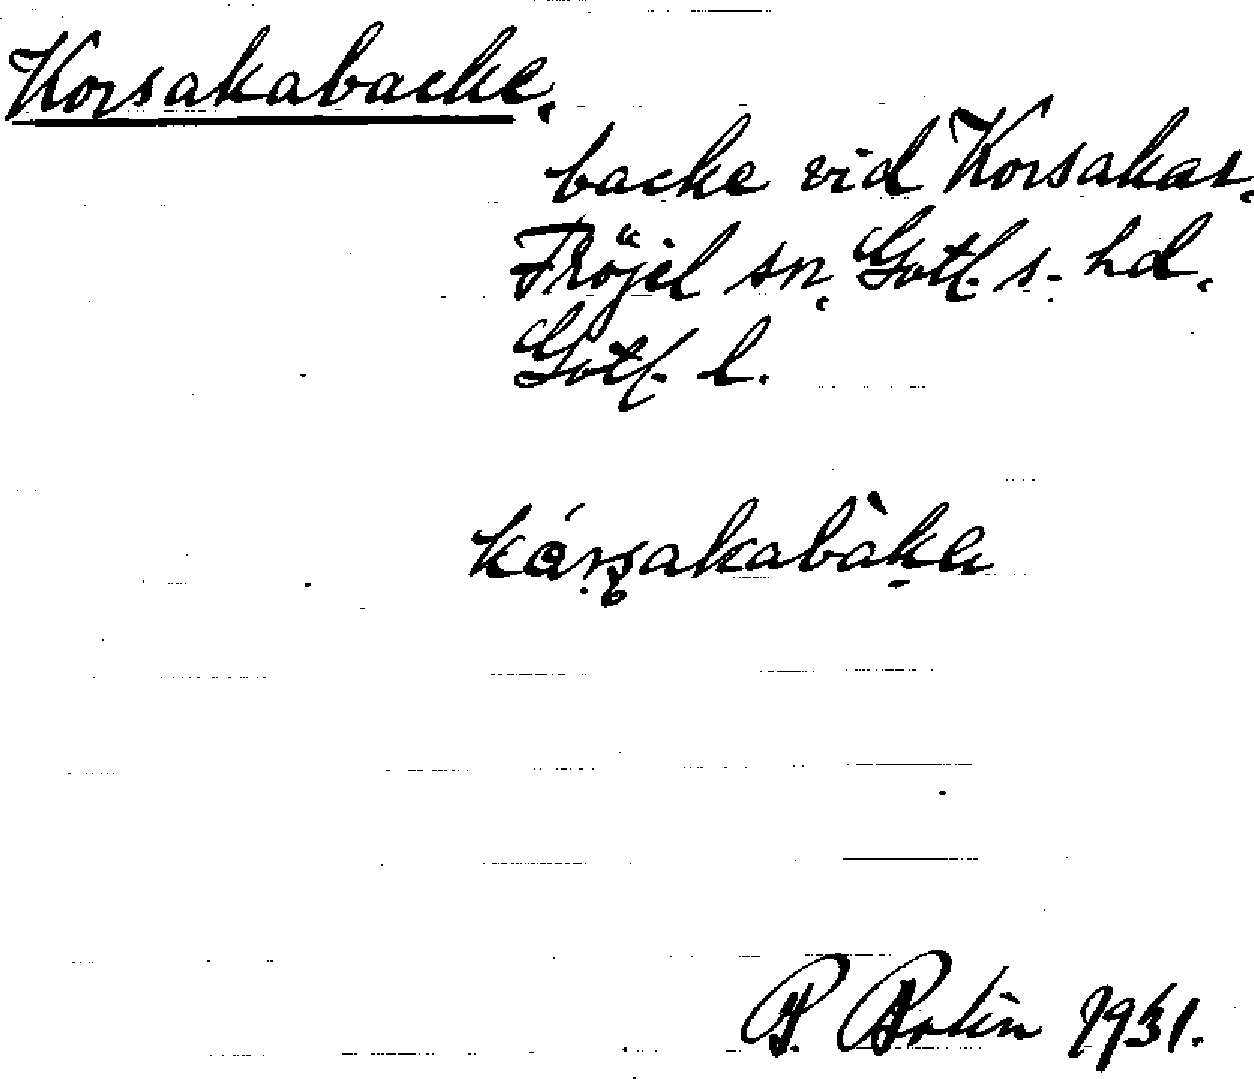 Korsakabacke.
backe vid Korsakar.
Fröjel sn. Gotl. s. hd.
Gotl. l.
P. Bolin 1931.